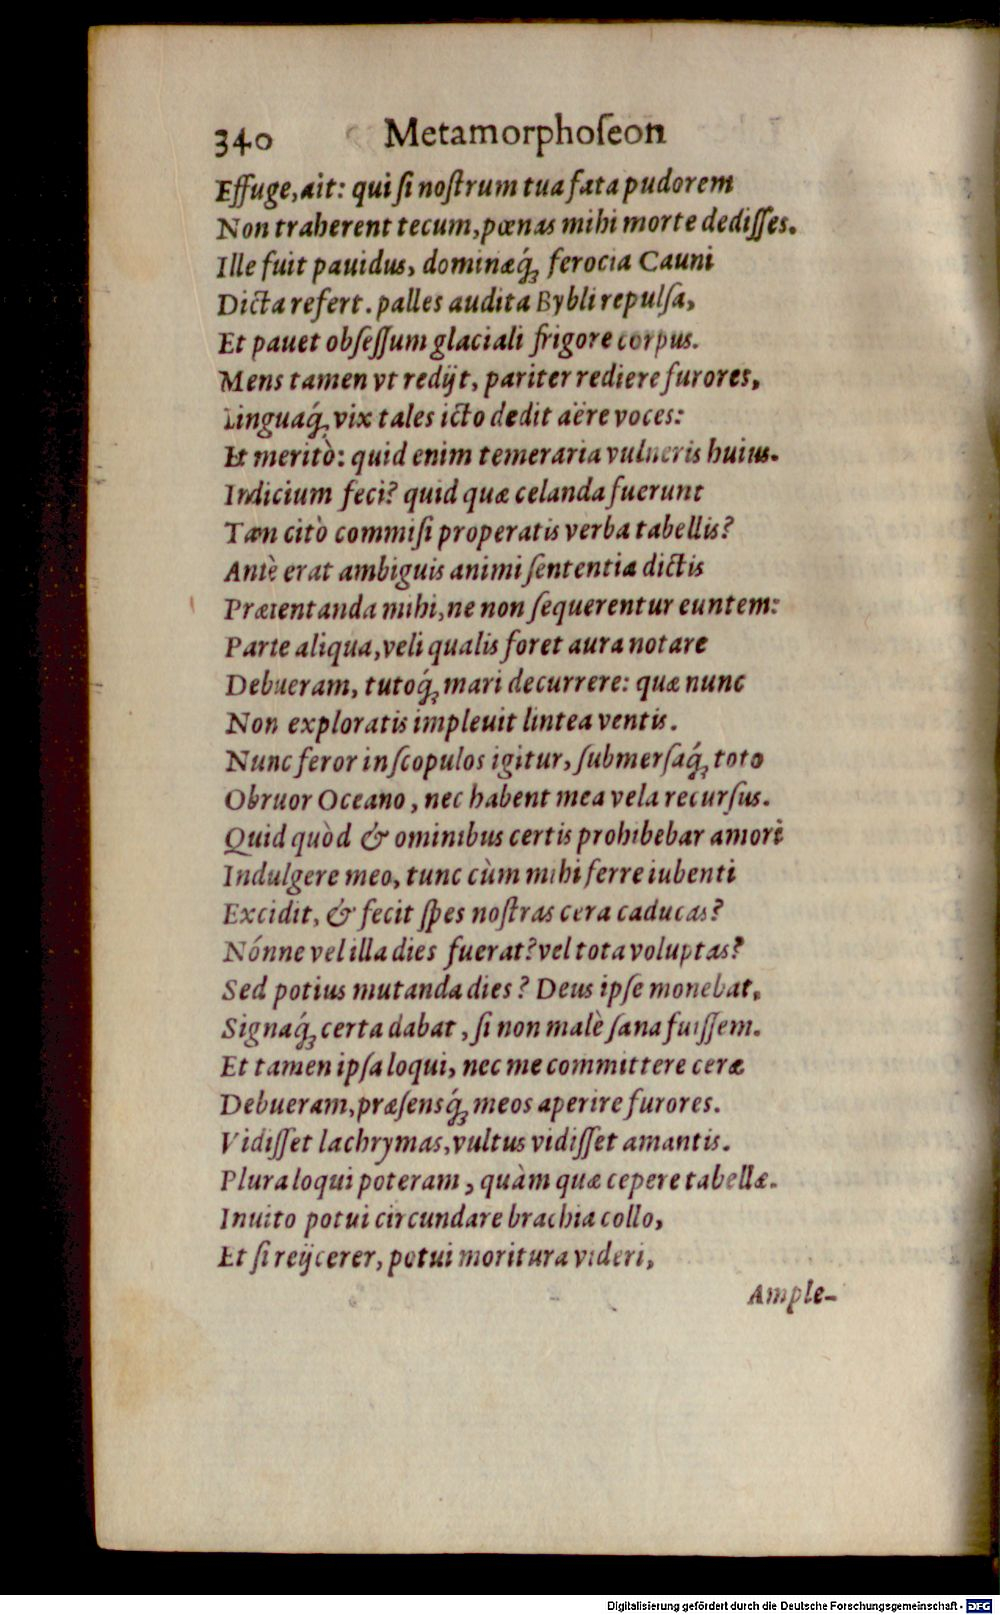 340 Metamorphoſeon
Effuge, ait: qui ſi noſtrum tua fata pudorem
Non traherent tecum, pœnas mihi morte dediſſes.
Ille fuit pauidus, dominæq́; ferocia Cauni
Dicta refert. palles audita Bybli repulſa,
Et pauet obſeſſum glaciali frigore corpus.
Mens tamen vt redijt, pariter rediere furores,
Linguaq́; vix tales icto dedit aëre voces:
Et meritò: quid enim temeraria vulneris huius.
Indicium feci? quid quæ celanda fuerunt
Tam citò commiſi properatis verba tabellis?
Antè erat ambiguis animi ſententia dictis
Prætentanda mihi, ne non ſequerentur euntem:
Parte aliqua, veli qualis foret aura notare
Debueram, tutoq́; mari decurrere: quæ nunc
Non exploratis impleuit lintea ventis.
Nunc feror in ſcopulos igitur, ſubmerſaq́; toto
Obruor Oceano, nec habent mea vela recurſus.
Quid quòd & ominibus certis prohibebar amori
Indulgere meo, tunc cùm mihi ferre iubenti
Excidit, & fecit ſpes noſtras cera caducas?
Nónne vel illa dies fuerat? vel tota voluptas?
Sed potius mutanda dies? Deus ipſe monebat,
Signaq́; certa dabat, ſi non malè ſana fuiſſem.
Et tamen ipſa loqui, nec me committere ceræ
Debueram, præſensq́; meos aperire furores.
Vidiſſet lachrymas, vultus vidiſſet amantis.
Plura loqui poteram, quàm quæ cepere tabellæ.
Inuito potui circundare brachia collo,
Et ſi reijcerer, potui moritura videri,
Ample-
Digitalisierung gefördert durch die Deutsche Forschungsgemeinschaft - DFG